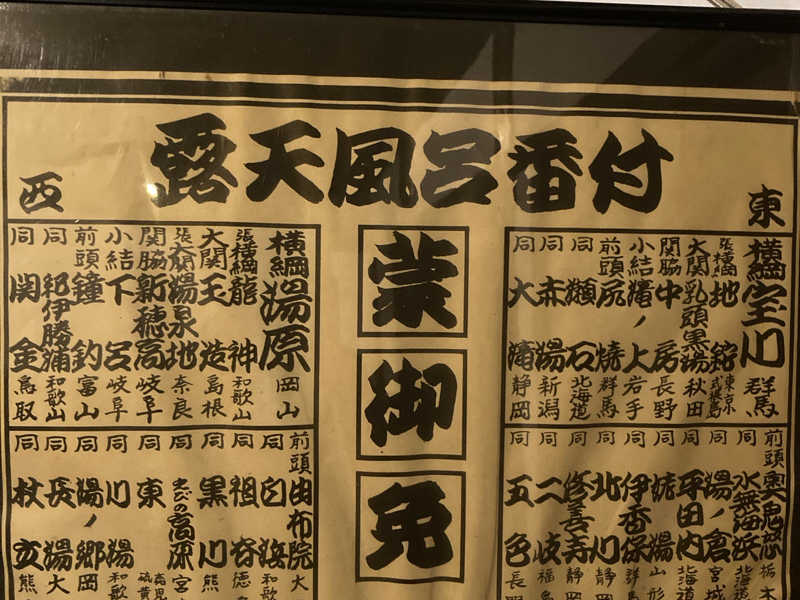 露天風呂番付
東
横綱 宝川 群馬
張横綱 地鉈 東京式根島
大関 乳頭黒湯 秋田
関脇 中房 長野
小結 瀧ノ上 岩手
前頭 尻焼 群馬
同 瀬石 北海道
同 赤湯 新潟
同 大瀧 静岡
前頭 奥鬼怒 栃木
同 水無海浜 北海道
同 湯ノ倉 宮城
同 平田内 北海道
同 姥湯 山形
同 伊香保 群馬
同 北川 静岡
同 修善寺 静岡
同 二岐 福島
同 五色 長
蒙御免
西
横綱 湯原 岡山
張横綱 龍神 和歌山
大関 玉造 島根
張大関 湯泉地 奈良
関脇 新穂高 岐阜
小結 下呂 岐阜
前頭 鐘釣 富山
同 紀伊勝浦 和歌山
同 関金 鳥取
前頭 由布院 大
同 白浜 和歌
同 祖谷 徳
同 黒川 熊
同 えびの高原 宮
同 東 鹿児 硫黄
同 川湯 和歌
同 湯ノ郷 岡
同 長湯 大
同 杖立 熊